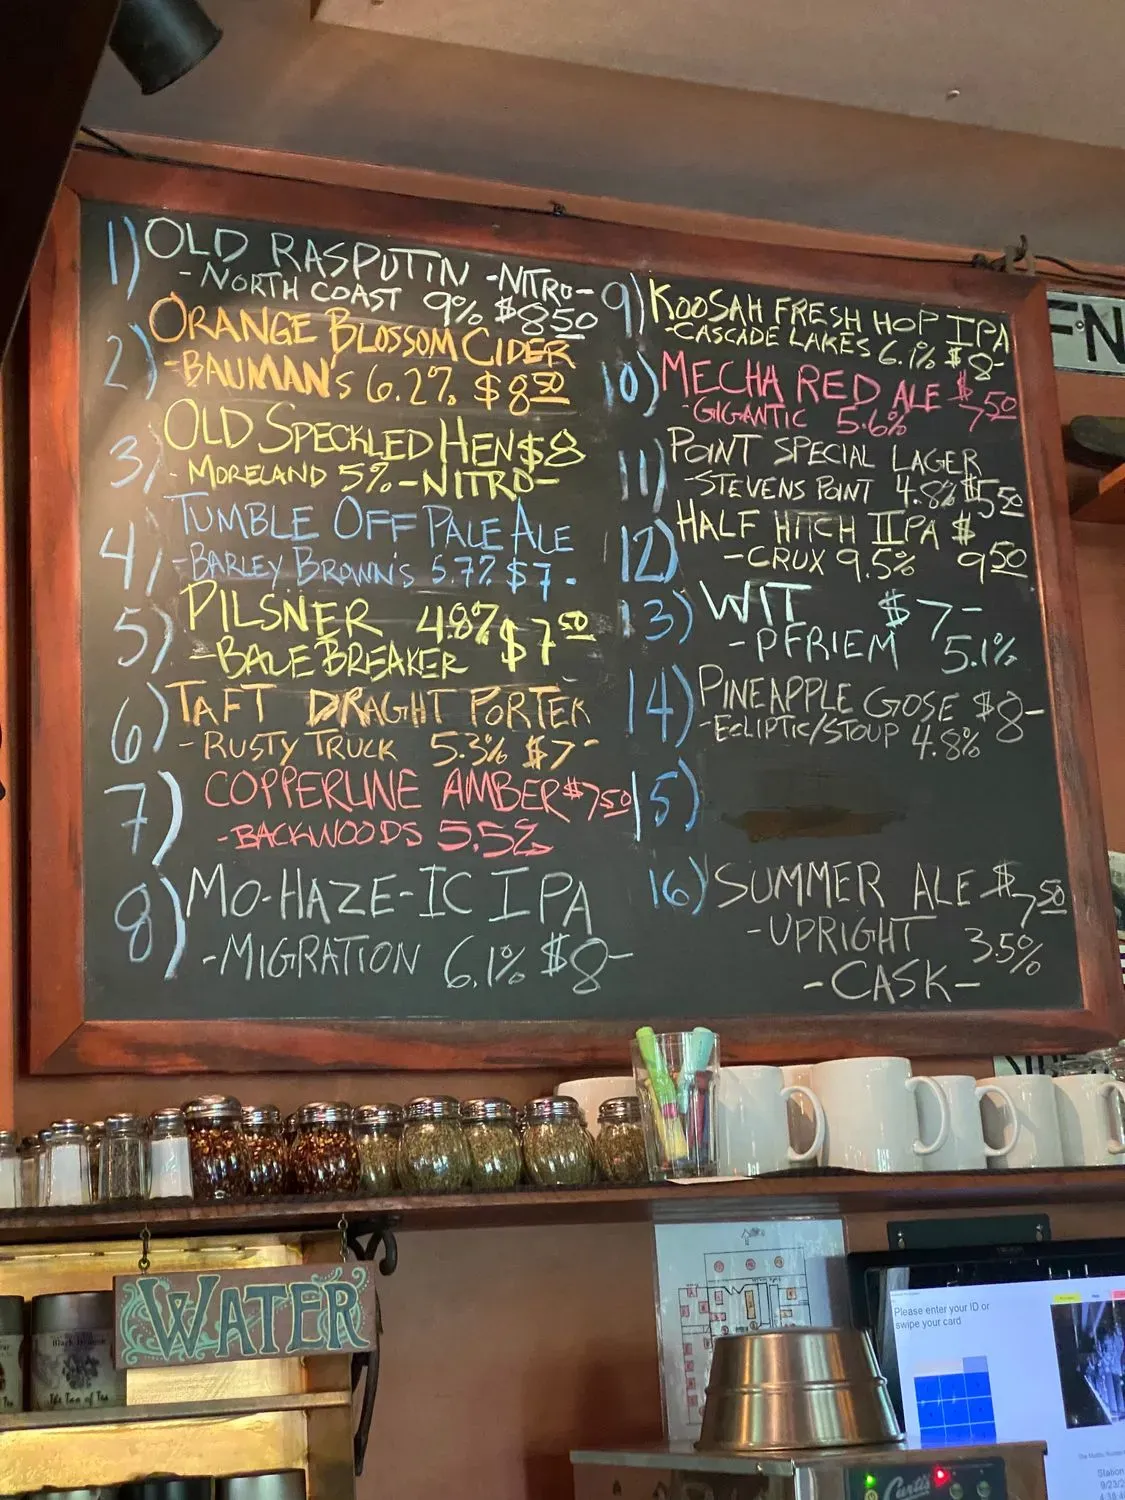 1) OLD RASPUTIN -NITRO-
- NORTH COAST 9% $8 50
2) ORANGE BLOSSOM CIDER
-BAUMAN'S 6.2% $8 50
3) OLD SPECKLED HEN $8
- MORELAND 5% -NITRO-
4) TUMBLE OFF PALE ALE
-BARLEY BROWN'S 5.7% $7-
5) PILSNER 4.8% $7 50
-BALE BREAKER
6) TAFT DRAGHT PORTER
- RUSTY TRUCK 5.3% $7-
7) COPPERLINE AMBER $7 50
-BACKWOODS 5.5%
8) MO-HAZE-IC IPA
-MIGRATION 6.1% $8-
9) KOOSAH FRESH HOP IPA
-CASCADE LAKES 6.1% $8-
10) MECHA RED ALE $7 50
-GIGANTIC 5.6%
11) POINT SPECIAL LAGER
-STEVENS POINT 4.8% $5 50
12) HALF HITCH IIPA $
-CRUX 9.5% 9 50
13) WIT $7-
-PFRIEM 5.1%
14) PINEAPPLE GOSE $8-
-ECLIPTIC/STOUP 4.8%
15)
16) SUMMER ALE $7 50
-UPRIGHT 3.5%
-CASK-
F·N
WATER
The Tao of Tea
Please enter your ID or
swipe your card
Station
Curtis